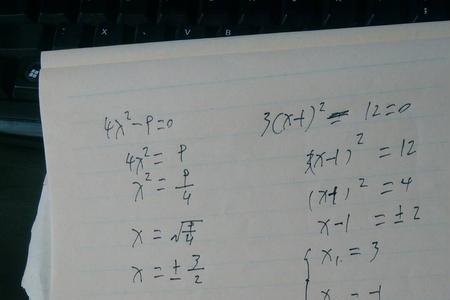 X V B
4x² - 9 = 0
4x² = 9
x² = 9/4
x = √9/4
x = ± 3/2
3(x-1)² = 12=0
3(x-1)² = 12
(x-1)² = 4
x-1 = ±2
x₁ = 3
x = -1